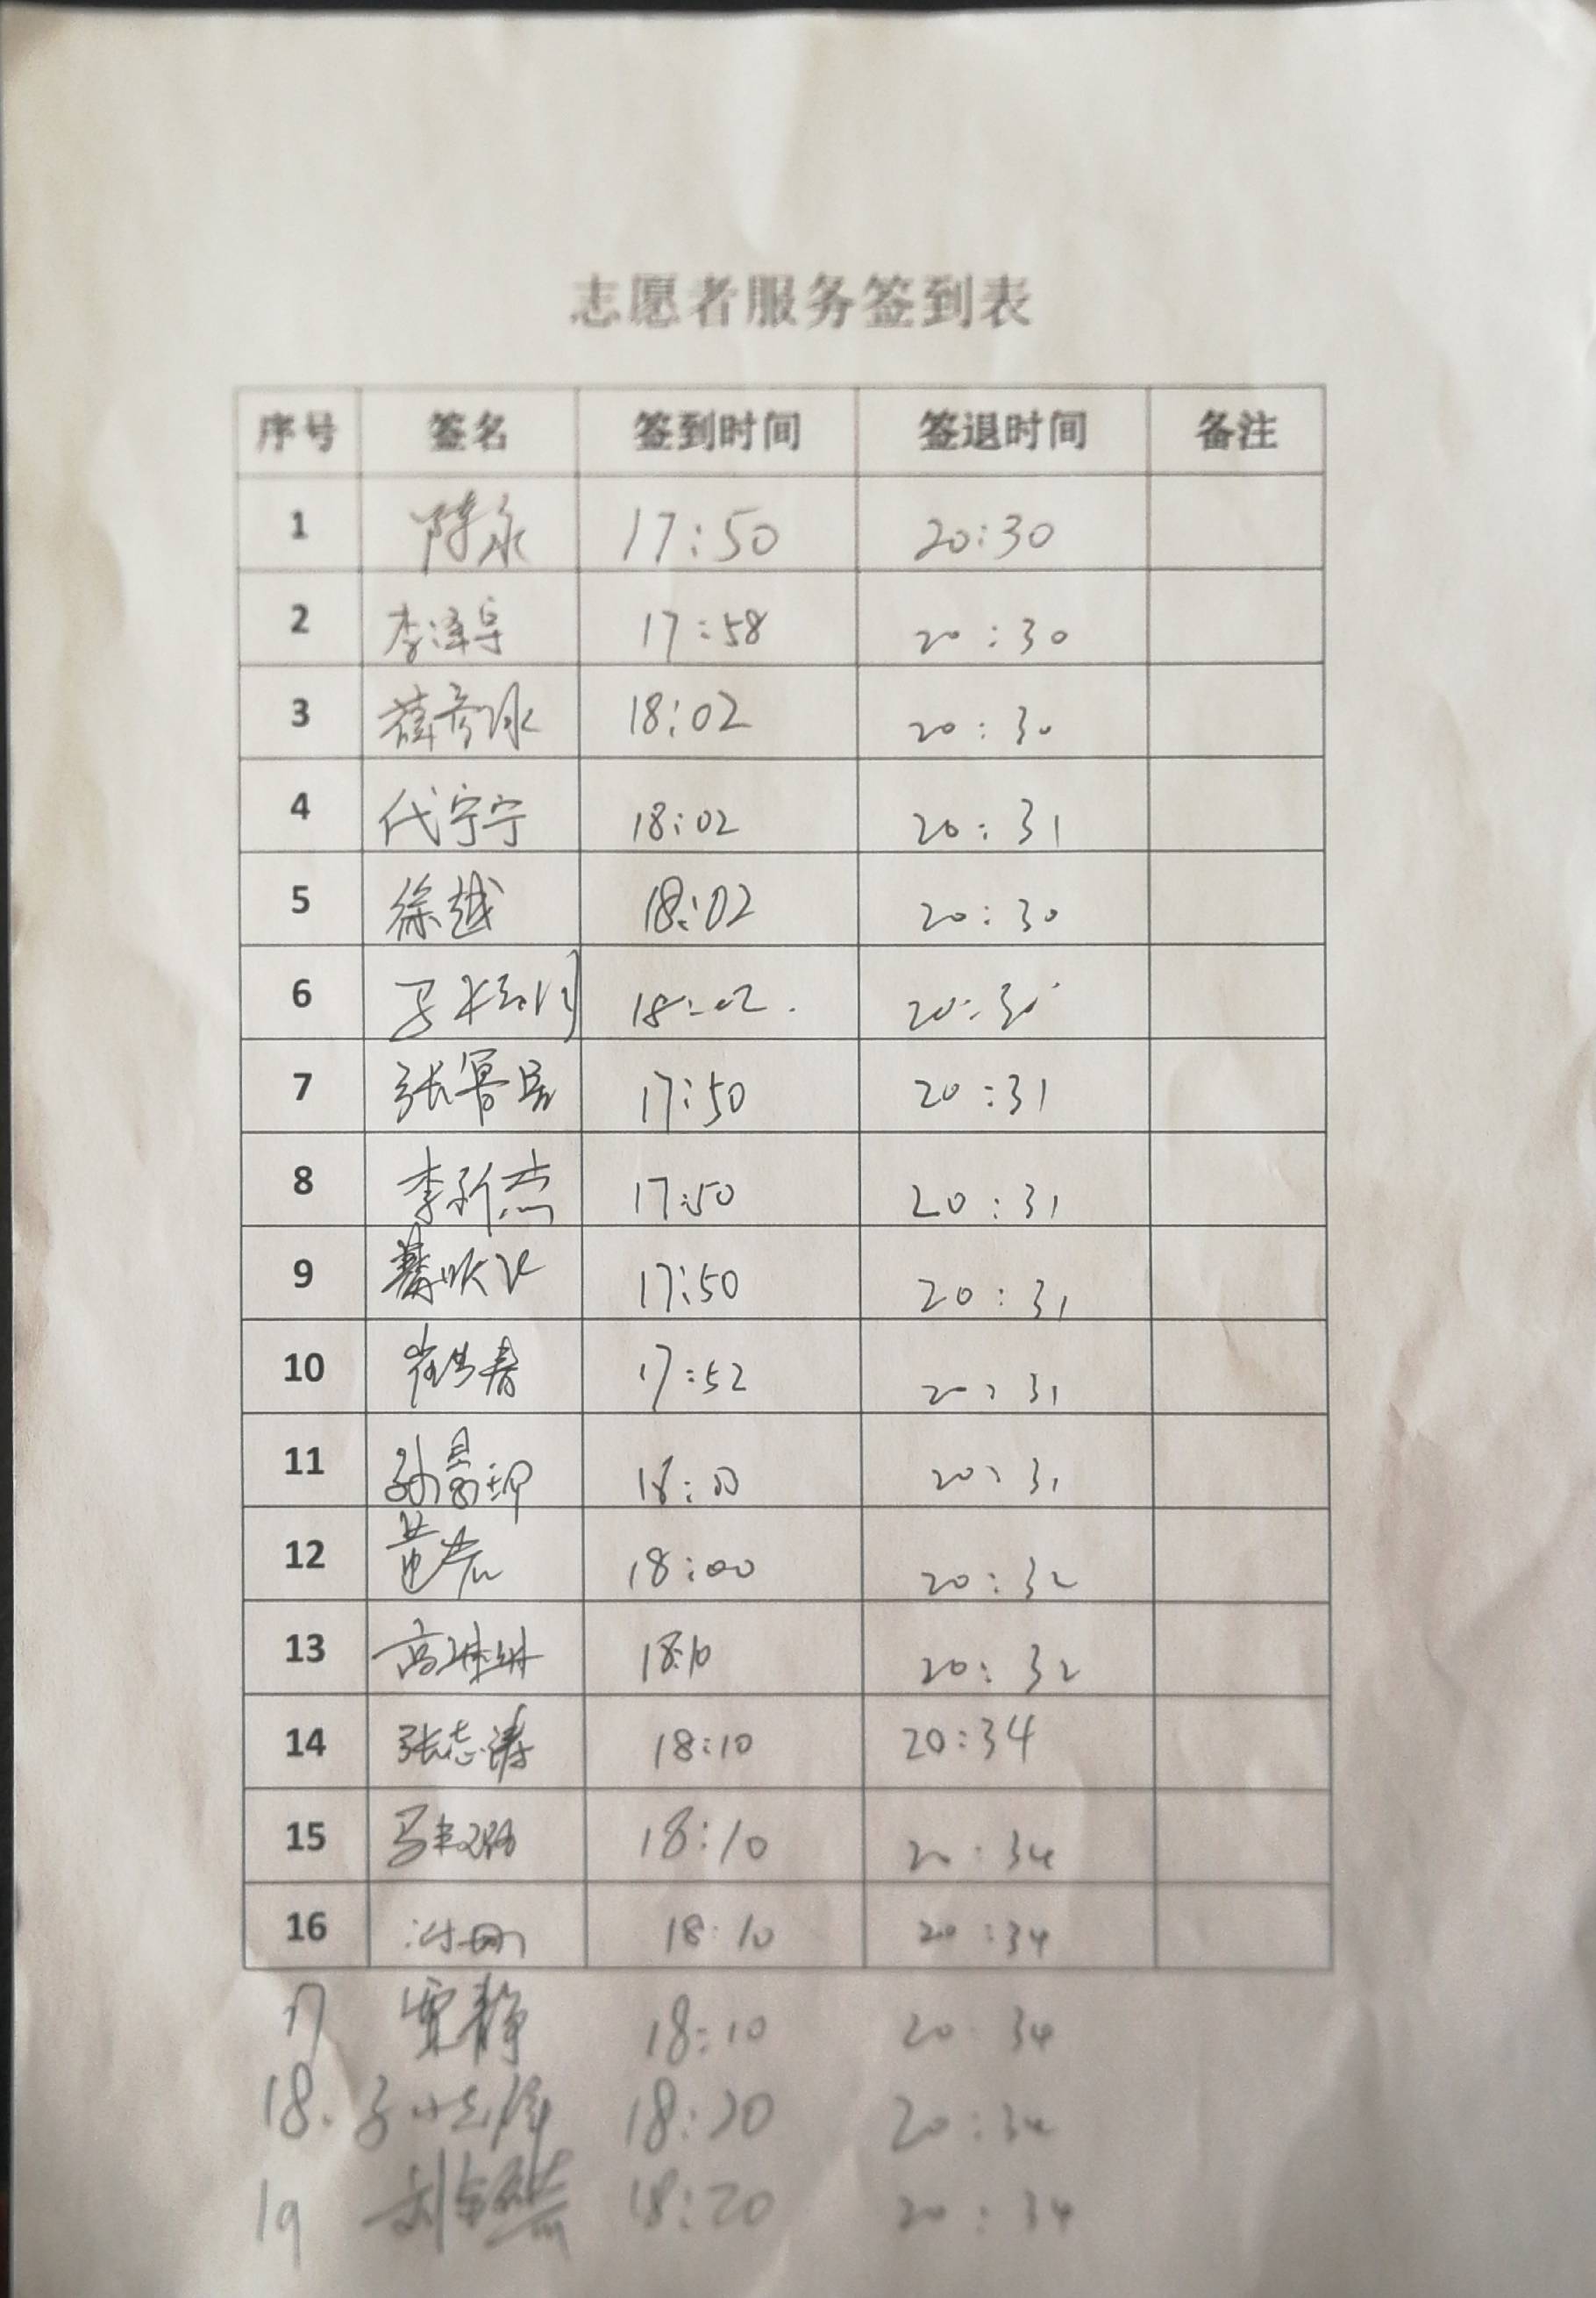 志愿者服务签到表
序号 签名 签到时间 签退时间 备注
1 陈永 17:50 20:30
2 李泽宇 17:58 20:30
3 18:02 20:30
4 代宁宁 18:02 20:31
5 徐越 18:02 20:30
6 18:02. 20:30
7 张 17:50 20:31
8 李新杰 17:50 20:31
9 17:50 20:31
10 崔 春 17:52 20:31
11 孙 18:00 20:31
12 黄 18:00 20:32
13 高琳琳 18:10 20:32
14 张志涛 18:10 20:34
15 马 18:10 20:34
16 18:10 20:34
17 贾静 18:10 20:34
18. 18:20 20:34
19 刘 18:20 20:34